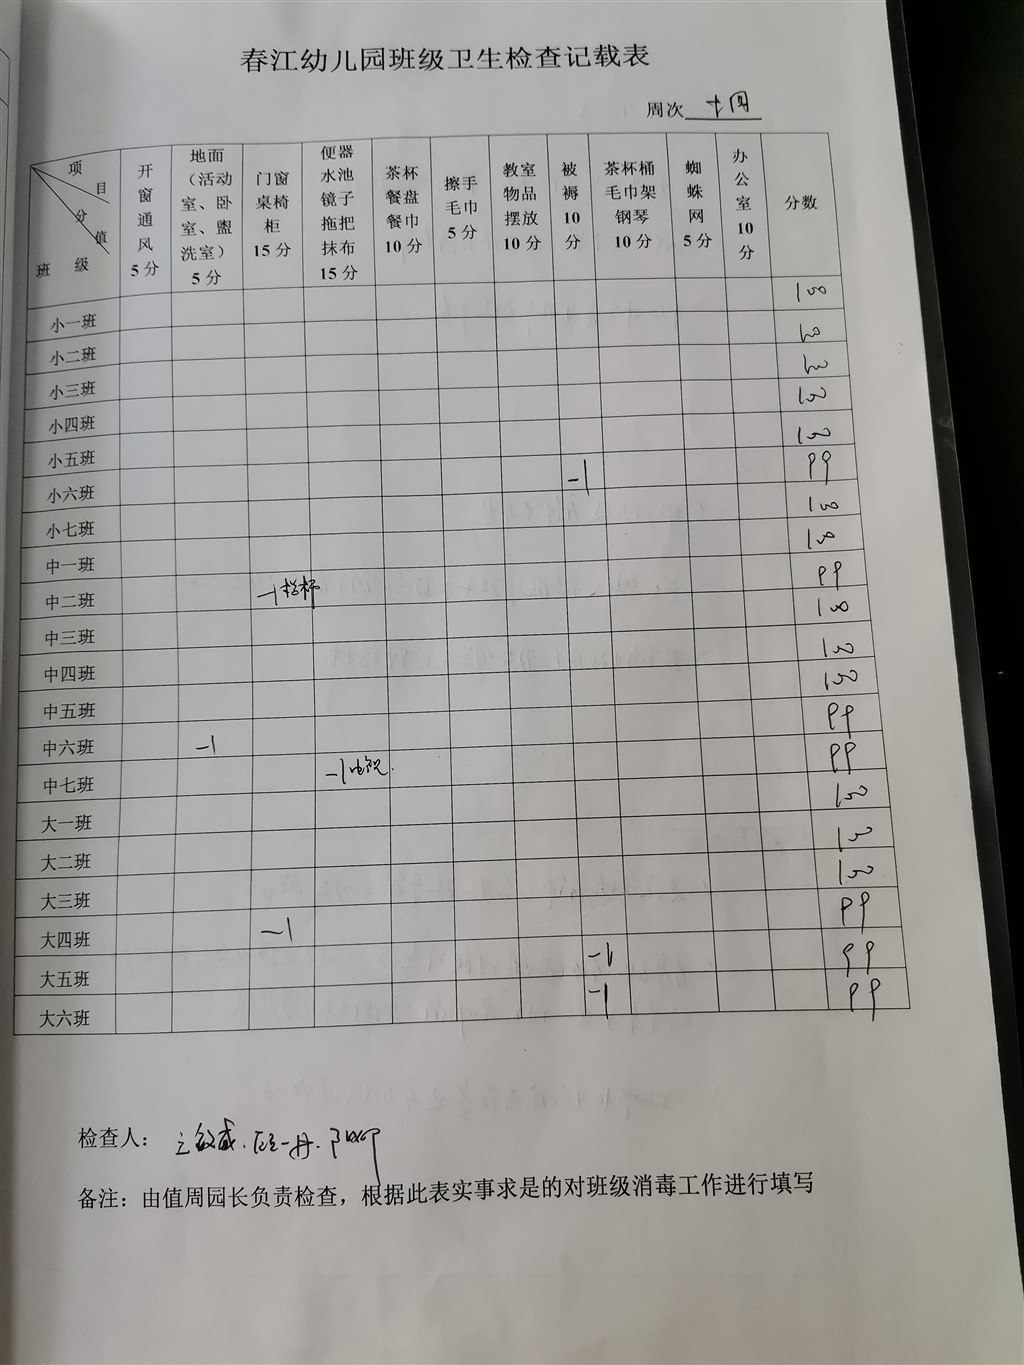 春江幼儿园班级卫生检查记载表
周次 十四
项目 分值 班级
开窗通风 5分
地面（活动室、卧室、盥洗室） 5分
门窗桌椅柜 15分
便器水池镜子拖把抹布 15分
茶杯餐盘餐巾 10分
擦手毛巾 5分
教室物品摆放 10分
被褥 10分
茶杯桶毛巾架钢琴 10分
蜘蛛网 5分
办公室 10分
分数
小一班 100
小二班 100
小三班 100
小四班 100
小五班 100
小六班 -1 99
小七班 100
中一班 100
中二班 -1 99
中三班 100
中四班 100
中五班 100
中六班 -1 99
中七班 -1 99
大一班 100
大二班 100
大三班 100
大四班 -1 99
大五班 -1 99
大六班 -1 99
检查人：
备注：由值周园长负责检查，根据此表实事求是的对班级消毒工作进行填写